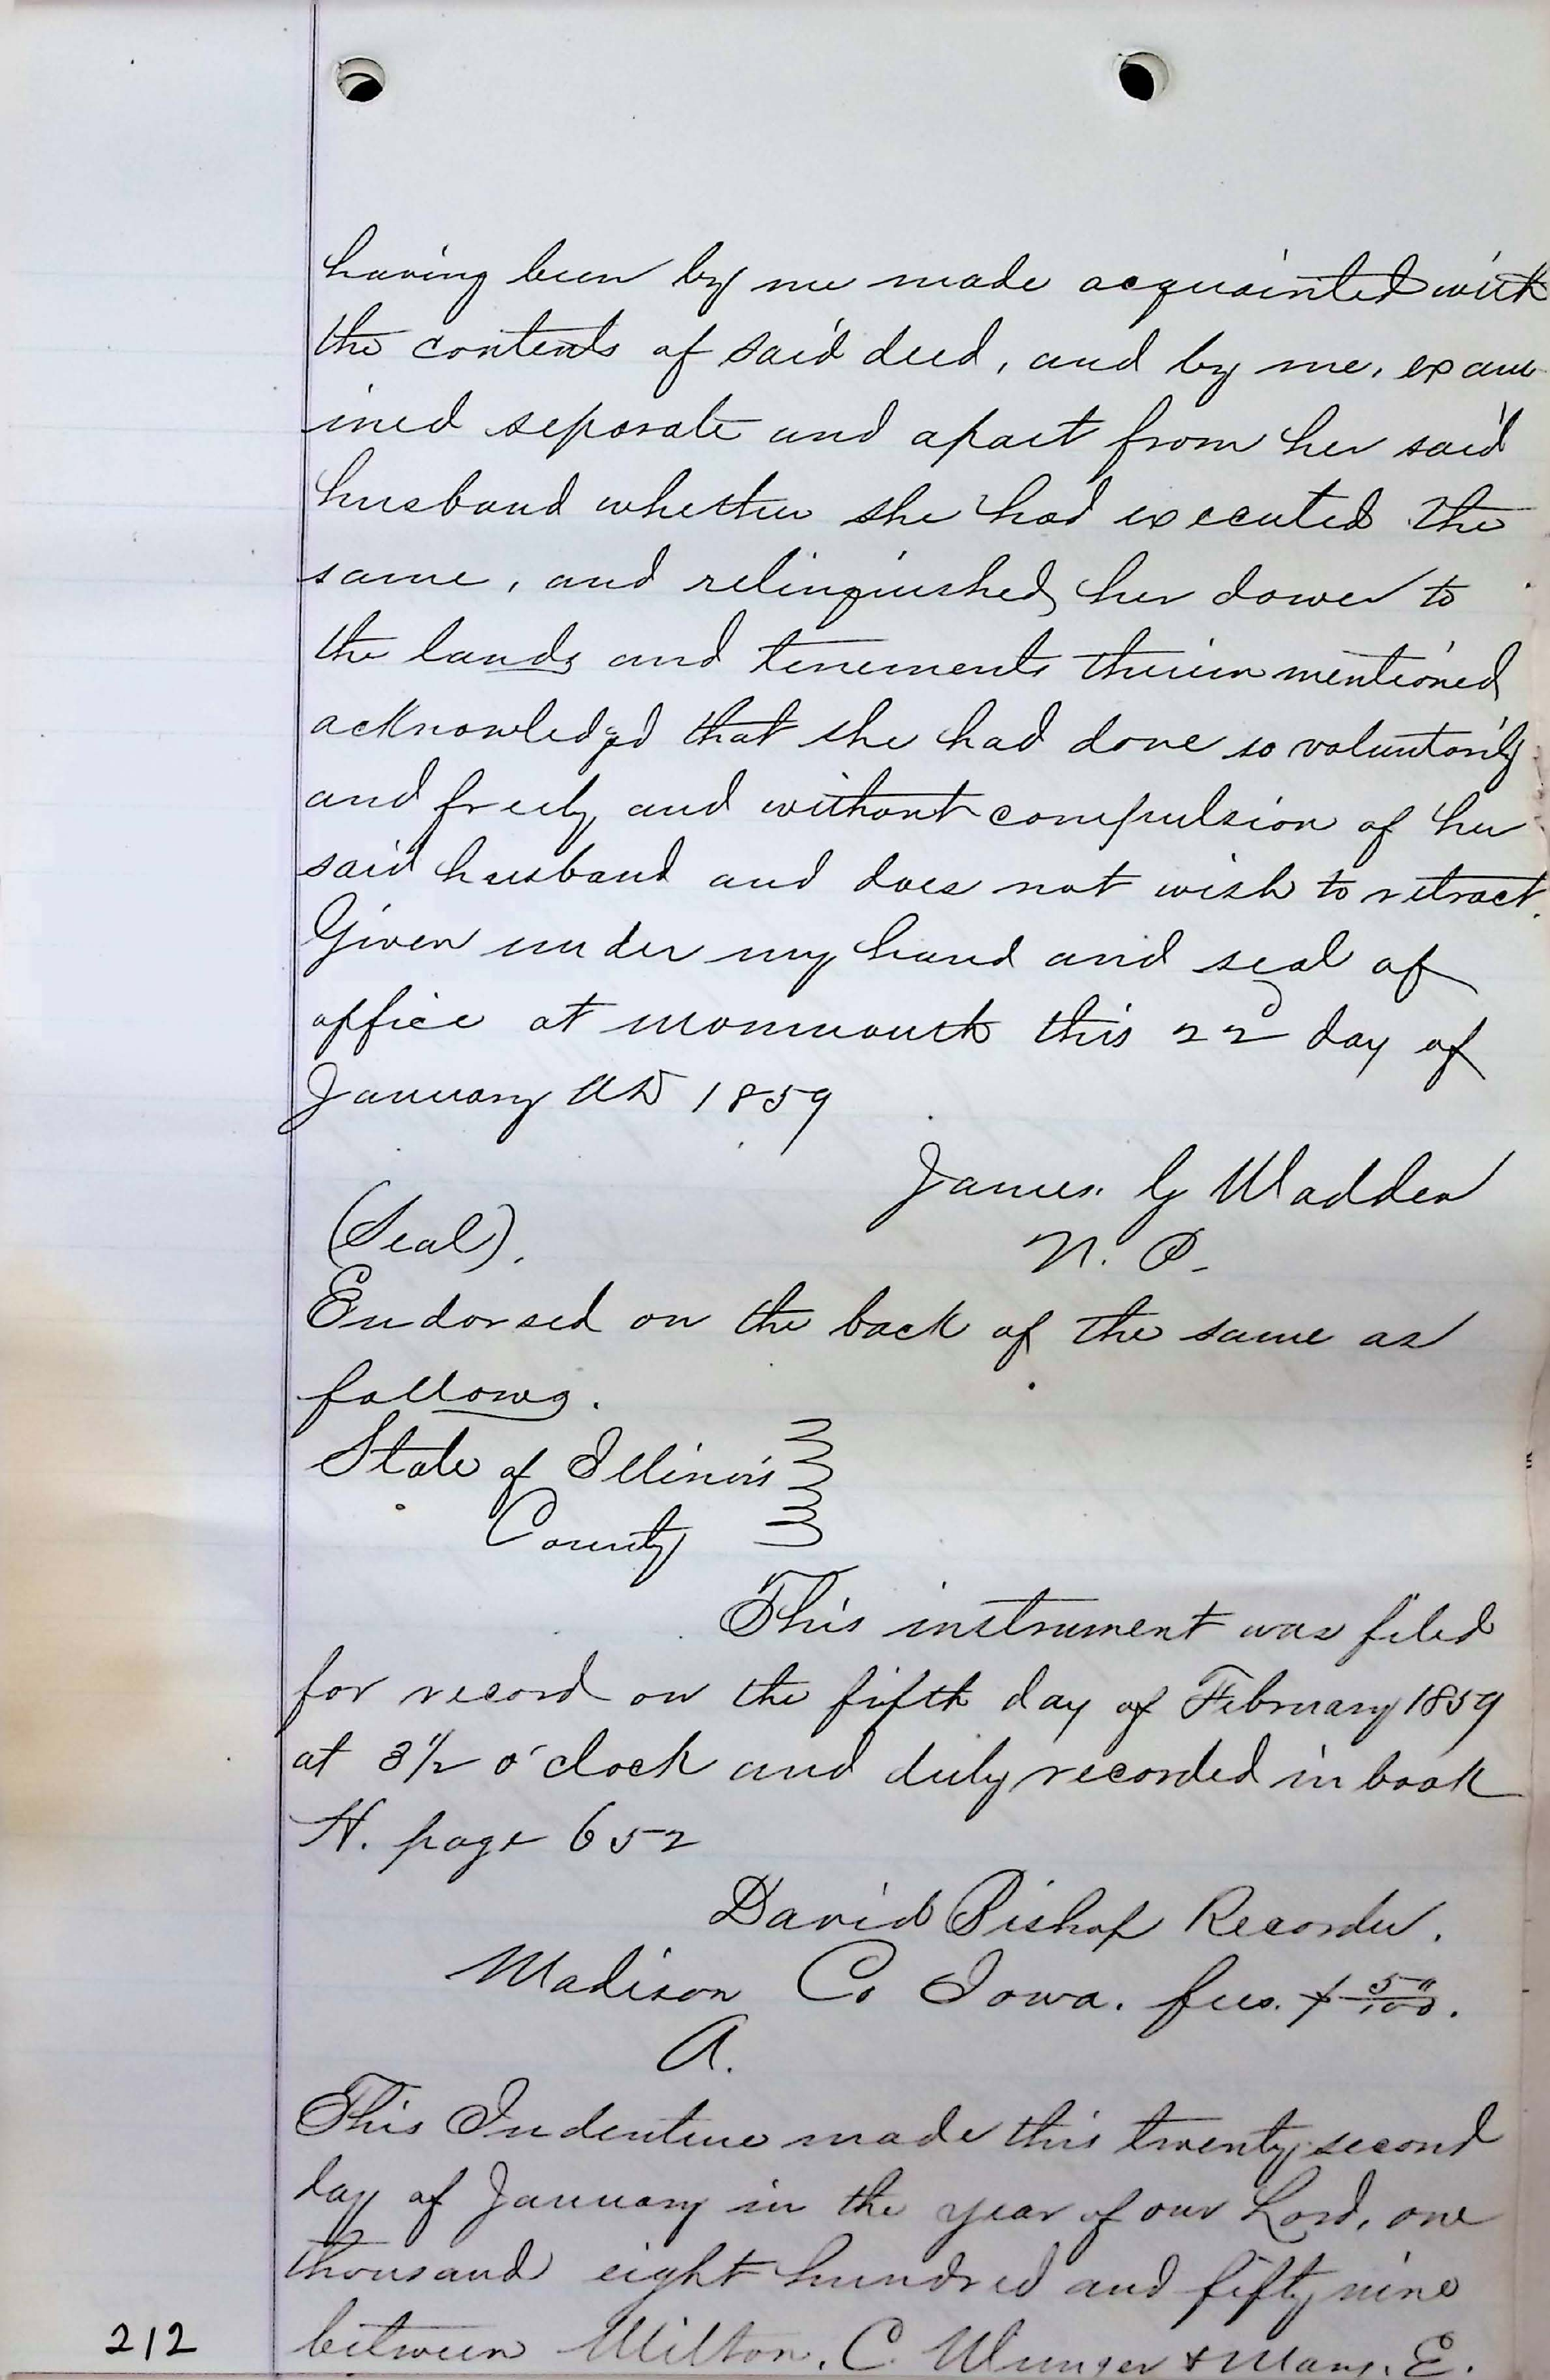 having been by me made acquainted with
the contents of said deed, and by me, exam-
ined separate and apart from her said
husband whether she had executed the
same, and relinquished her dower to
the lands and tenements therein mentioned
acknowledgd that she had done so voluntarily
and freely and without compulsion of her
said husband and does not wish to retract.
Given under my hand and seal of
office at Monmouth this 22d day of
January AD 1859
James. G Madden
(Seal).
N. P.
Endorsed on the back of the same as
follows.
State of Illinois
County
This instrument was filed
for record on the fifth day of February 1859
at 3 1/2 o'clock and duly recorded in book
H. page 652
David Bishop Recorder.
Madison Co Iowa. fees. 50/100.
A.
This Indenture made this twenty second
day of January in the year of our Lord, one
thousand eight hundred and fifty nine
212
between Milton. C. Munger & Mary. E.